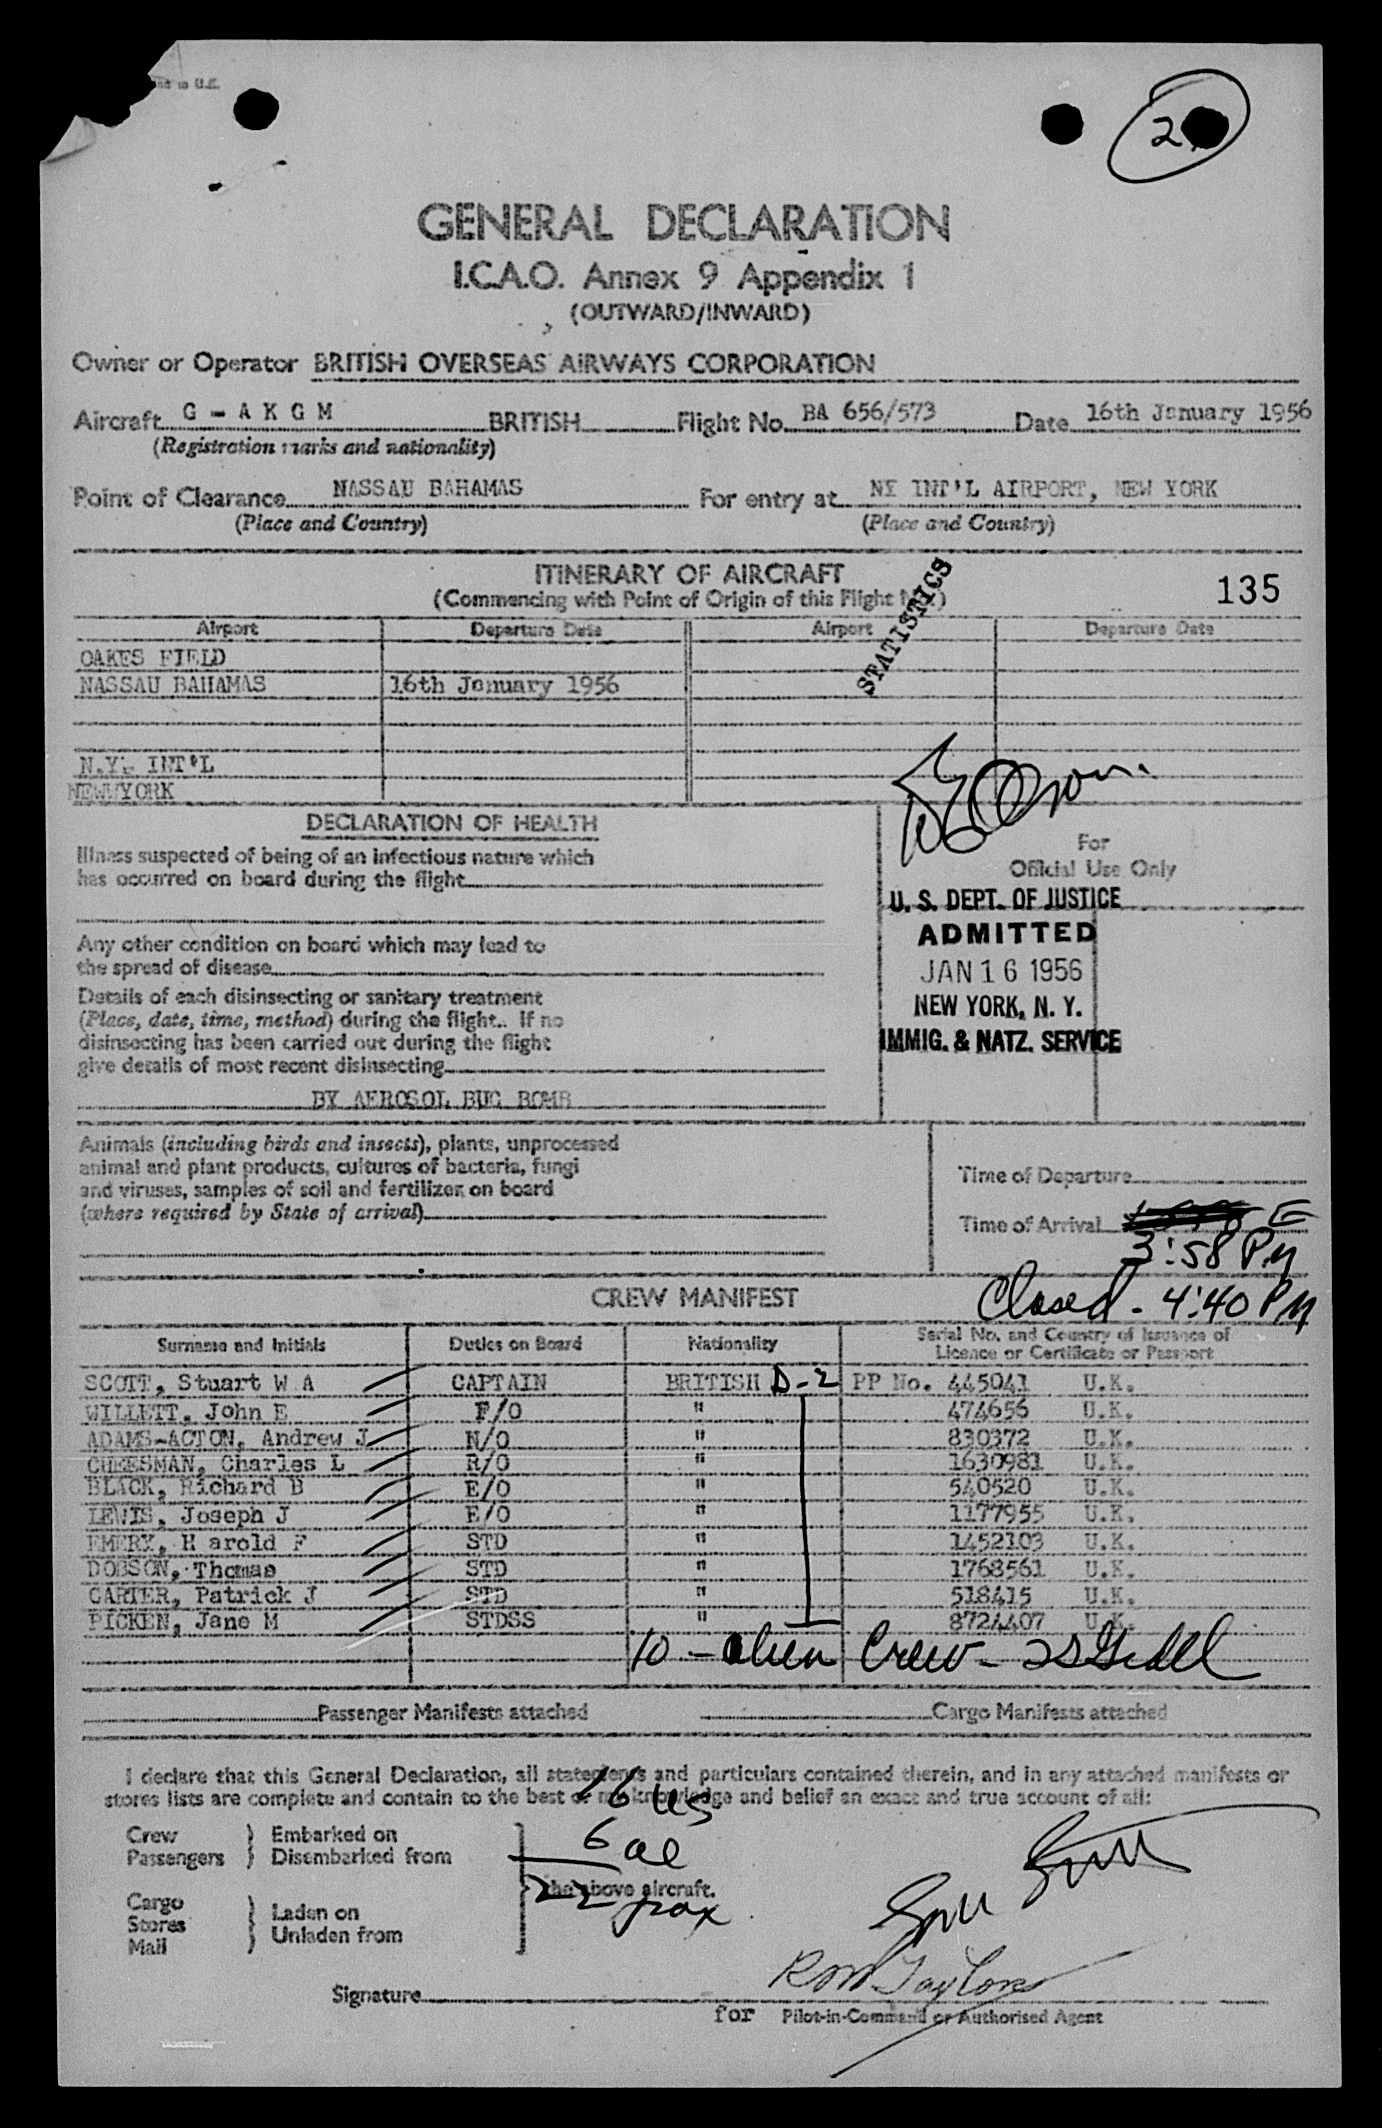 in U.K.
2
GENERAL DECLARATION
I.C.A.O. Annex 9 Appendix 1
(OUTWARD/INWARD)
Owner or Operator BRITISH OVERSEAS AIRWAYS CORPORATION
Aircraft G - A K G M BRITISH Flight No. BA 656/573 Date 16th January 1956
(Registration marks and nationality)
Point of Clearance NASSAU BAHAMAS For entry at NY INT'L AIRPORT, NEW YORK
(Place and Country) (Place and Country)
ITINERARY OF AIRCRAFT 135
(Commencing with Point of Origin of this Flight
STATISTICS
Airport Departure Date Airport Departure Date
OAKES FIELD
NASSAU BAHAMAS 16th January 1956
N.Y. INT'L
NEW YORK
DECLARATION OF HEALTH
For
Official Use Only
Illness suspected of being of an infectious nature which
has occurred on board during the flight
U. S. DEPT. OF JUSTICE
ADMITTED
JAN 16 1956
NEW YORK, N. Y.
IMMIG. & NATZ. SERVICE
Any other condition on board which may lead to
the spread of disease
Details of each disinsecting or sanitary treatment
(Place, date, time, method) during the flight. If no
disinsecting has been carried out during the flight
give details of most recent disinsecting
BY AEROSOL BUG BOMB
Animals (including birds and insects), plants, unprocessed
animal and plant products, cultures of bacteria, fungi
and viruses, samples of soil and fertilizer on board
(where required by State of arrival)
Time of Departure
Time of Arrival E
3:58 PM
Closed - 4:40 PM
CREW MANIFEST
Surname and Initials Duties on Board Nationality Serial No. and Country of Issuance of
Licence or Certificate or Passport
SCOTT, Stuart W A CAPTAIN BRITISH D-2 PP No. 445041 U.K.
WILLETT, John E F/O " 474656 U.K.
ADAMS-ACTON, Andrew J N/O " 830372 U.K.
CHEESMAN, Charles L R/O " 1630981 U.K.
BLACK, Richard B E/O " 540520 U.K.
LEWIS, Joseph J E/O " 1177955 U.K.
EMERY, H arold F STD " 1452103 U.K.
DOBSON, Thomas STD " 1768561 U.K.
CARTER, Patrick J STD " 518415 U.K.
PICKEN, Jane M STDSS " 8724407 U.K.
10 - alien Crew -
Passenger Manifests attached Cargo Manifests attached
I declare that this General Declaration, all statements and particulars contained therein, and in any attached manifests or
stores lists are complete and contain to the best of my knowledge and belief an exact and true account of all:
16 us
6 al
22 pax
Crew } Embarked on
Passengers } Disembarked from
the above aircraft.
Cargo
Stores } Laden on
Mail } Unladen from
Signature R M Taylor
for Pilot-in-Command or Authorised Agent